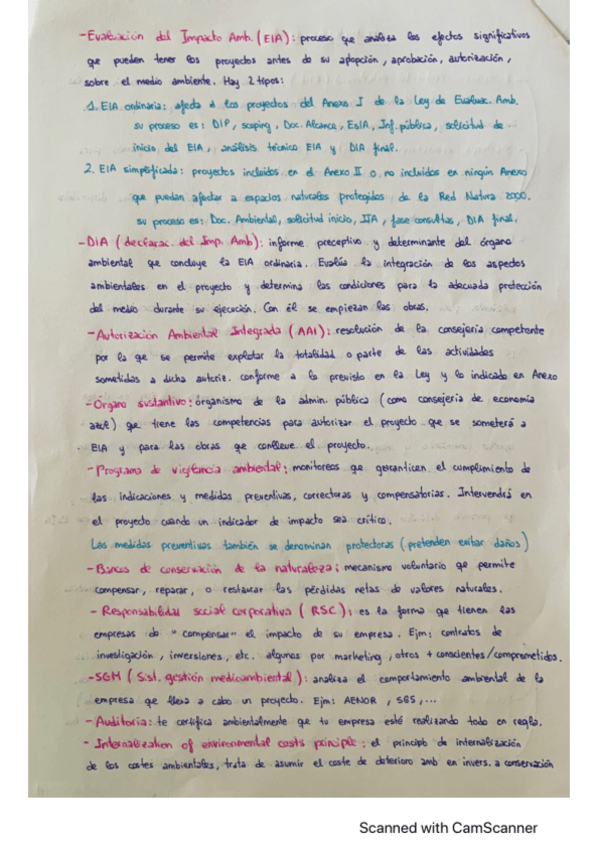 -Evaluación del Impacto Amb. (EIA): proceso que analiza los efectos significativos
que pueden tener los proyectos antes de su adopción, aprobación, autorización,
sobre el medio ambiente. Hay 2 tipos:
1. EIA ordinaria: afecta a los proyectos del Anexo I de la Ley de Evaluac. Amb.
su proceso es: DIP, scoping, Doc. Alcance, EsIA, Inf. pública, solicitud de
inicio del EIA, análisis técnico EIA y DIA final.
2. EIA simplificada: proyectos incluidos en el Anexo II o no incluidos en ningún Anexo
que puedan afectar a espacios naturales protegidos de la Red Natura 2000.
su proceso es: Doc. Ambiental, solicitud inicio, IIA, fase consultas, DIA final.
-DIA (declarac. del Imp. Amb): informe preceptivo y determinante del órgano
ambiental que concluye la EIA ordinaria. Evalúa la integración de los aspectos
ambientales en el proyecto y determina las condiciones para la adecuada protección
del medio durante su ejecución. Con él se empiezan las obras.
-Autorización Ambiental Integrada (AAI): resolución de la consejería competente
por la qe se permite explotar la totalidad o parte de las actividades
sometidas a dicha autoriz. conforme a lo previsto en la Ley y lo indicado en Anexo
-Órgano sustantivo: órganismo de la admin. pública (como consejería de economía
azul) que tiene las competencias para autorizar el proyecto que se someterá a
EIA y para las obras que conlleve el proyecto.
-Programa de vigilancia ambiental: monitoreos que garanticen el cumplimiento de
las indicaciones y medidas preventivas, correctoras y compensatorias. Intervendrá en
el proyecto cuando un indicador de impacto sea crítico.
Las medidas preventivas también se denominan protectoras (pretenden evitar daños)
-Bancos de conservación de la naturaleza: mecanismo voluntario qe permite
compensar, reparar, o restaurar las pérdidas netas de valores naturales.
- Responsabilidad social corporativa (RSC): es la forma qe tienen las
empresas de "compensar" el impacto de su empresa. Ejm: contratos de
investigación, inversiones, etc. algunos por marketing, otros + conscientes/comprometidos.
-SGM (Sist. gestión medioambiental): analiza el comportamiento ambiental de la
empresa que lleva a cabo un proyecto. Ejm: AENOR, SGS,...
- Auditoria: te certifica ambientalmente que tu empresa esté realizando todo en regla.
- Internalization of environmental costs principle: el principio de internalización
de los costes ambientales, trata de asumir el coste de deterioro amb en invers. a conservación
Scanned with CamScanner